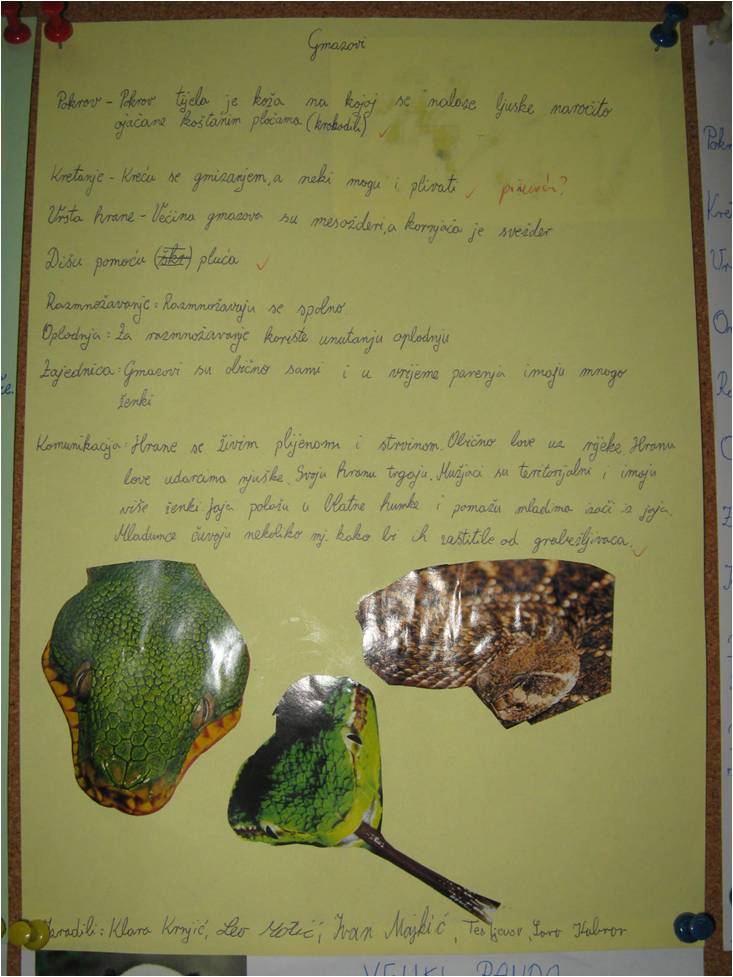 Gmazovi
Pokrov - Pokrov tijela je koža na kojoj se nalaze ljuske naročito
ojačane koštanim pločama (krokodili)
Kretanje - Kreću se gmizanjem, a neki mogu i plivati
Vrsta hrane - Većina gmazova su mesožderi, a kornjača je svežder
Dišu pomoću (škr) pluća
Razmnožavanje: Razmnožavaju se spolno
Oplodnja: Za razmnožavanje koriste unutanju oplodnju
Zajednica: Gmazovi su obično sami i u vrijeme parenja imaju mnogo
ženki
Komunikacija: Hrane se živim plijenom i strvinom. Obično love uz rijeke. Hranu
love udarcima njuške. Svoju hranu trgaju. Mužjaci su teritorjalni i imaju
više ženki. Jaja polažu u blatne humke i pomažu mladima izaći iz jaja.
Mladunce čuvaju nekoliko mj. kako bi ih zaštitile od grabežljivaca.
Izradili: Klara Krnjić, Leo Ivan Majkić,
VELIKI PANDA